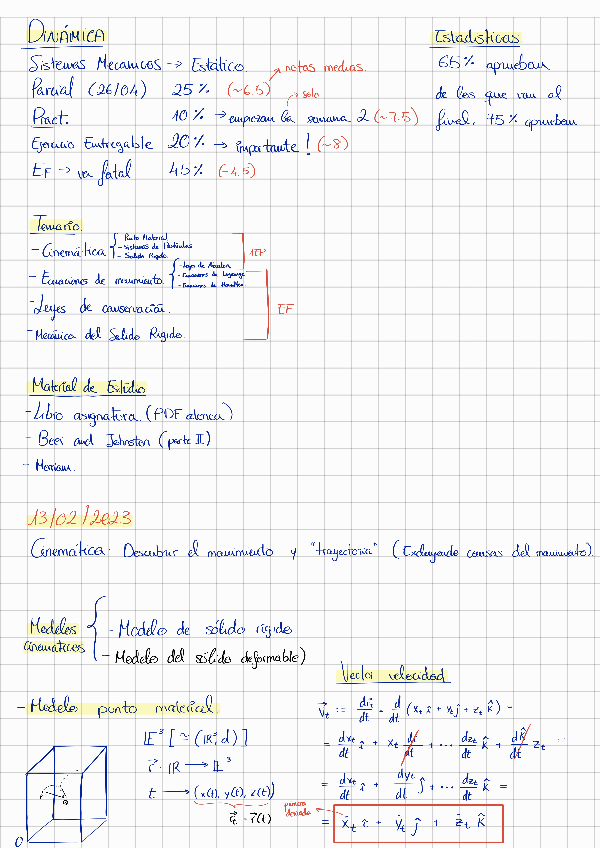 DINÁMICA
Sistemas Mecanicos -> Estático.
notas medias.
Parcial (26/04) 25% (~6.5)
solo
Pract. 10% → empiezan la semana 2 (~7.5)
Ejercicio Entregable 20% → importante! (~8)
EF → va fatal 45% (~4.5)
Estadísticas
65% aprueban
de los que van al
final, 75% aprueban
Temario.
- Cinemática { - Punto Material
- Sistemas de Partículas
- Solido Rigido
1EP
- Ecuaciones de movimiento. { - Leyes de Newton
- Ecuaciones de Lagrange
- Ecuaciones de Hamilton
- Leyes de conservación.
EF
- Mecánica del Solido Rigido.
Material de Estudio
- Libro asignatura. (PDF atenea)
- Beer and Johnston (parte II.)
- Merriam.
13/02/2023
Cinemática: Describir el movimiento y "trayectoria" (Excluyendo causas del movimiento).
Modelos
cinemáticos
- Modelo de sólido rígido
- Modelo del sólido deformable)
- Modelo punto material.
E³ [≈ (R³, d)]
r⃗: R → E³
t → (x(t), y(t), z(t))
r⃗t = r⃗(t)
O
Vector velocidad
v⃗t := dr⃗t/dt = d/dt (xt î + yt ĵ + zt k̂) =
= dxt/dt î + xt dî/dt + ... dzt/dt k̂ + dk̂/dt zt
= dxt/dt î + dyt/dt ĵ + ... dzt/dt k̂ =
primera
derivada
ẋt î + ẏt ĵ + żt k̂